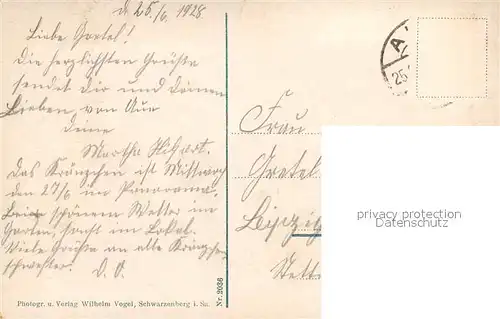 d. 25./6. 1928
Liebe Gretel!
Die herzlichsten Grüße
sendet dir und deinen
Lieben von Aue
deine
Martha
Das Kränzchen ist Mittwoch
den 27/6 im Panorama.
Bei schönem Wetter im
Garten, sonst im Lokal.
Viele Grüße an alle Kränzchen
schwester. D. O.
Photogr. u. Verlag Wilhelm Vogel, Schwarzenberg i. Sa.
Nr. 2036
A
25.
Frau
Gretel
Leipzig
privacy protection
Datenschutz